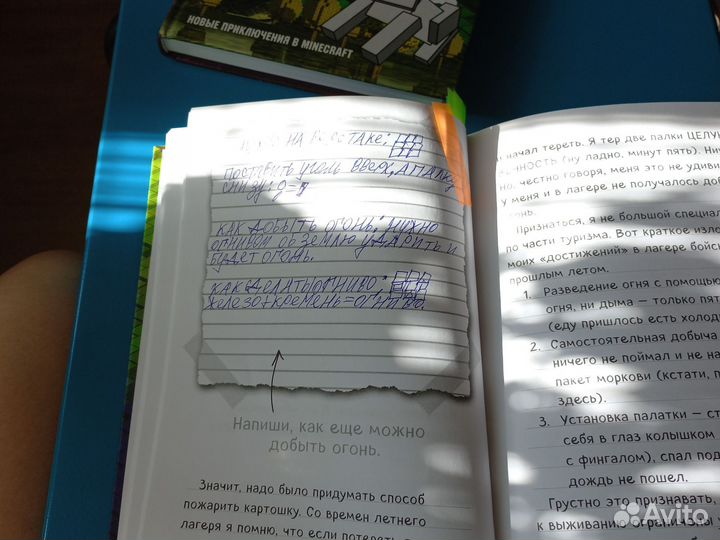 НОВЫЕ ПРИКЛЮЧЕНИЯ В MINECRAFT
НА ВЕРСТАКЕ:
ПОСТАВИТЬ УГОЛЬ ВВЕРХ, А ПАЛКУ
СНИЗУ:
КАК ДОБЫТЬ ОГОНЬ: НУЖНО
ОГНИВОМ ОБ ЗЕМЛЮ УДАРИТЬ И
БУДЕТ ОГОНЬ.
КАК ДЕЛАТЬ ОГНИВО:
ЖЕЛЕЗО+КРЕМЕНЬ=ОГНИВО.
Напиши, как еще можно
добыть огонь.
Значит, надо было придумать способ
пожарить картошку. Со времен летнего
лагеря я помню, что если потереть
и начал тереть. Я тер две палки ЦЕЛУЮ
(ну ладно, минут пять). Ни
но, честно говоря, меня это не удиви
У меня и в лагере не получалось до
Признаться, я не большой специал
по части туризма. Вот краткое изло
моих «достижений» в лагере бойс
прошлым летом.
1. Разведение огня с помощью
огня, ни дыма — только пят
(еду пришлось есть холод
2. Самостоятельная добыча
ничего не поймал и не на
пакет моркови (кстати, п
здесь).
3. Установка палатки — ст
себя в глаз колышком
с фингалом), спал под
дождь не пошел.
Грустно это признавать,
к выживанию ограничены у
Avito